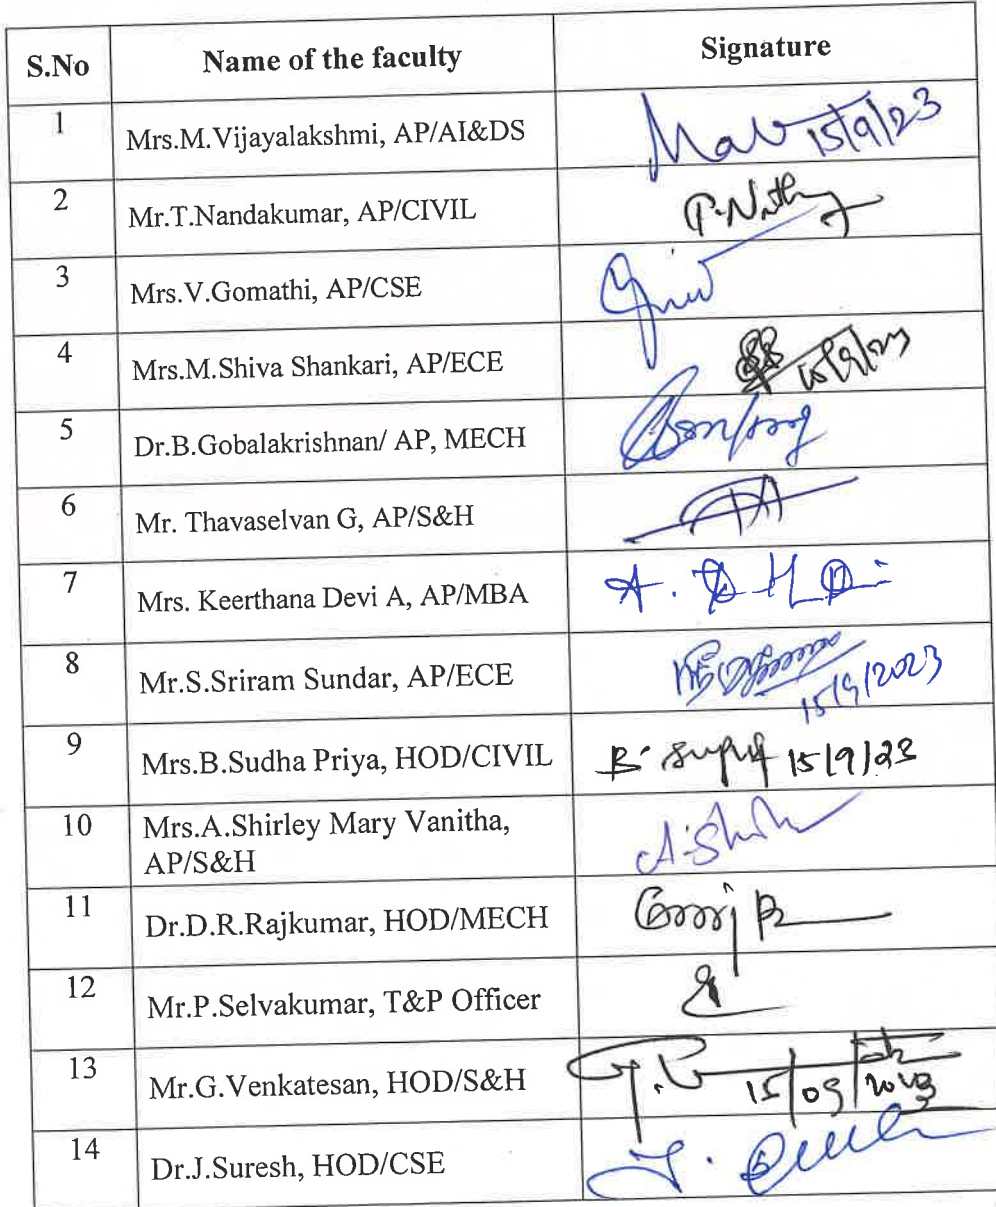 S.No Name of the faculty Signature
1 Mrs.M.Vijayalakshmi, AP/AI&DS 15/9/23
2 Mr.T.Nandakumar, AP/CIVIL
3 Mrs.V.Gomathi, AP/CSE
4 Mrs.M.Shiva Shankari, AP/ECE 15/9/23
5 Dr.B.Gobalakrishnan/ AP, MECH
6 Mr. Thavaselvan G, AP/S&H
7 Mrs. Keerthana Devi A, AP/MBA
8 Mr.S.Sriram Sundar, AP/ECE
15/9/2023
9 Mrs.B.Sudha Priya, HOD/CIVIL 15/9/23
10 Mrs.A.Shirley Mary Vanitha,
AP/S&H
11 Dr.D.R.Rajkumar, HOD/MECH
12 Mr.P.Selvakumar, T&P Officer
13 Mr.G.Venkatesan, HOD/S&H 15/09/2023
14 Dr.J.Suresh, HOD/CSE